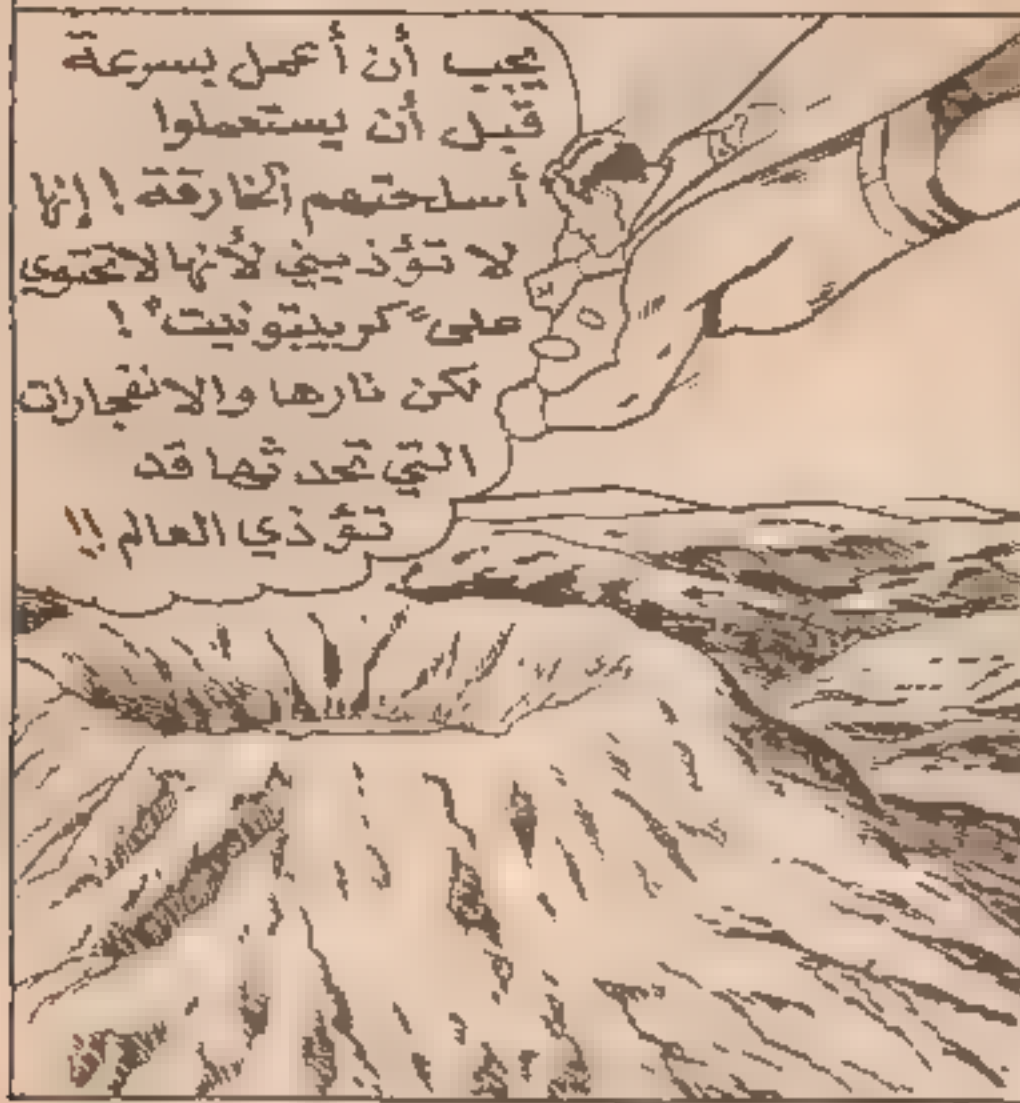 يجب أن أعمل بسرعة
قبل أن يستعملوا
أسلحتهم الخارقة ! إنها
لا تؤذيني لأنها لا تحتوي
على "كريبتونيت" !
لكن نارها والانفجارات
التي تحدثها قد
تؤذي العالم !!